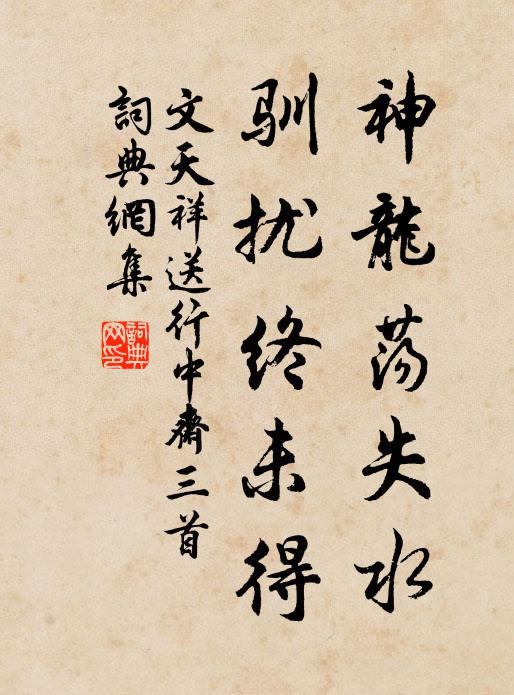 神龍荡失水
驯扰终未得
文天祥送行中齋三首
詞典網集
詞典網印